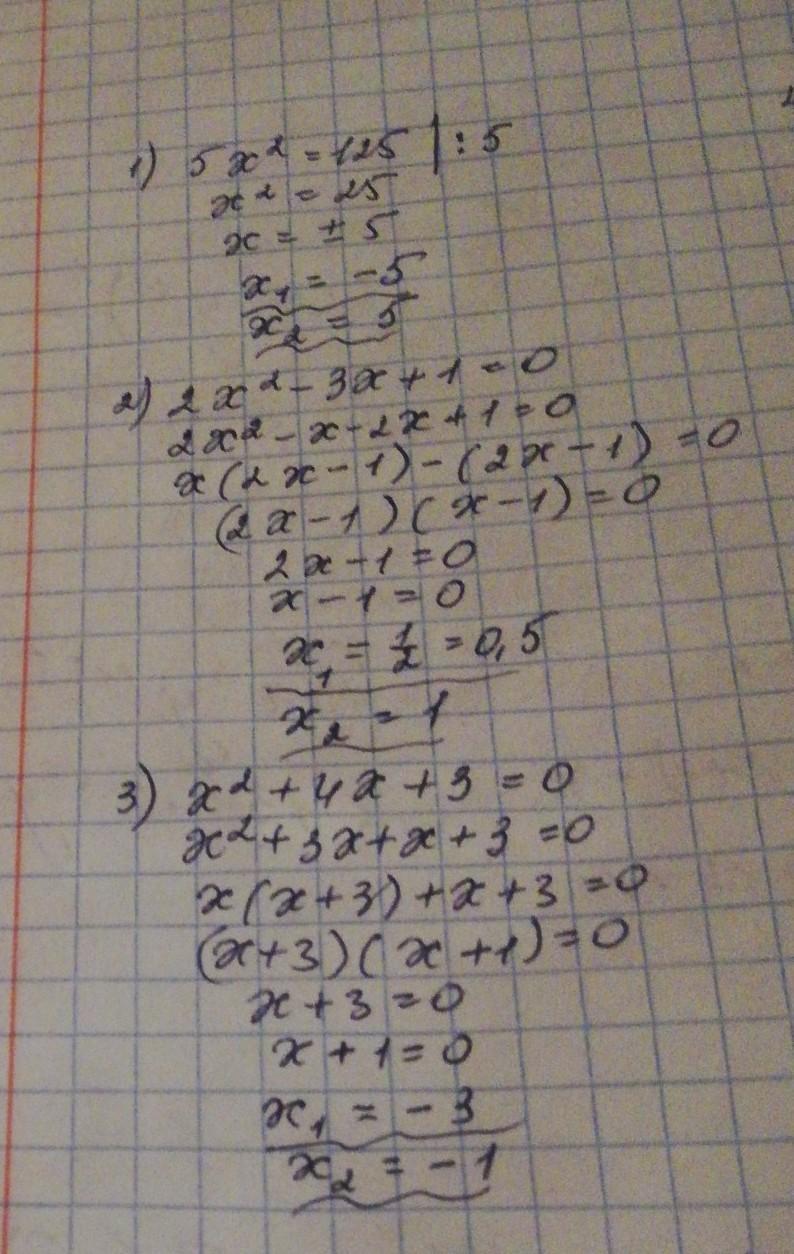 1) 5x² = 125 | : 5
x² = 25
x = ± 5
x₁ = -5
x₂ = 5
2) 2x² - 3x + 1 = 0
2x² - x - 2x + 1 = 0
x(2x - 1) - (2x - 1) = 0
(2x - 1)(x - 1) = 0
2x - 1 = 0
x - 1 = 0
x₁ = 1/2 = 0,5
x₂ = 1
3) x² + 4x + 3 = 0
x² + 3x + x + 3 = 0
x(x + 3) + x + 3 = 0
(x + 3)(x + 1) = 0
x + 3 = 0
x + 1 = 0
x₁ = - 3
x₂ = - 1